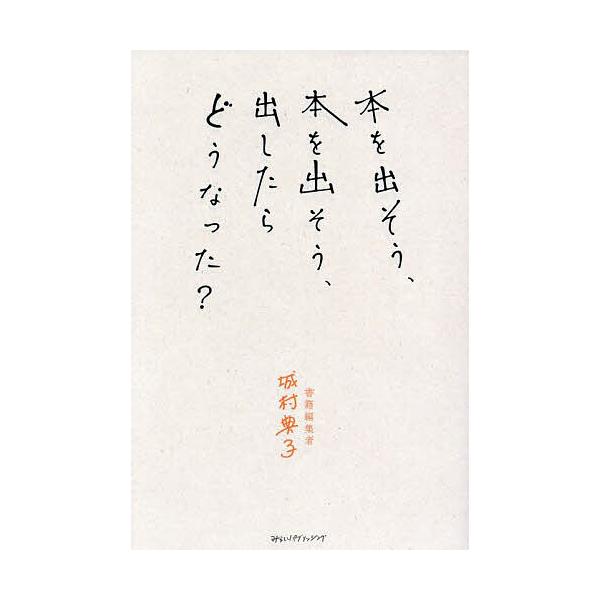 本を出そう、
本を出そう、
出したら
どうなった？
書籍編集者
城村典子
みらいパブリッシング